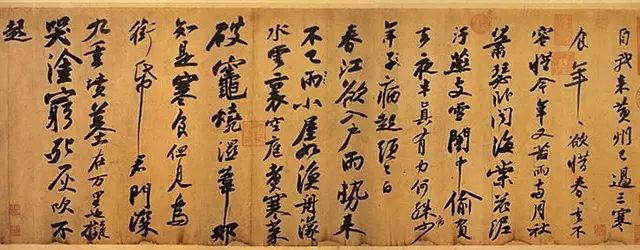 自我來黃州已過三寒
食年々欲惜春々去不
容惜今年又苦雨兩月秋
蕭瑟卧聞海棠花泥
汙燕支雪闇中偷負
去夜半真有力何殊病少
年子病起頭已白
春江欲入戶雨勢來
不已雨小屋如漁舟濛々
水雲裏空庖煮寒菜
破竈燒濕葦那
知是寒食但見烏
銜帋君門深
九重墳墓在万里也擬
哭塗窮死灰吹不
起